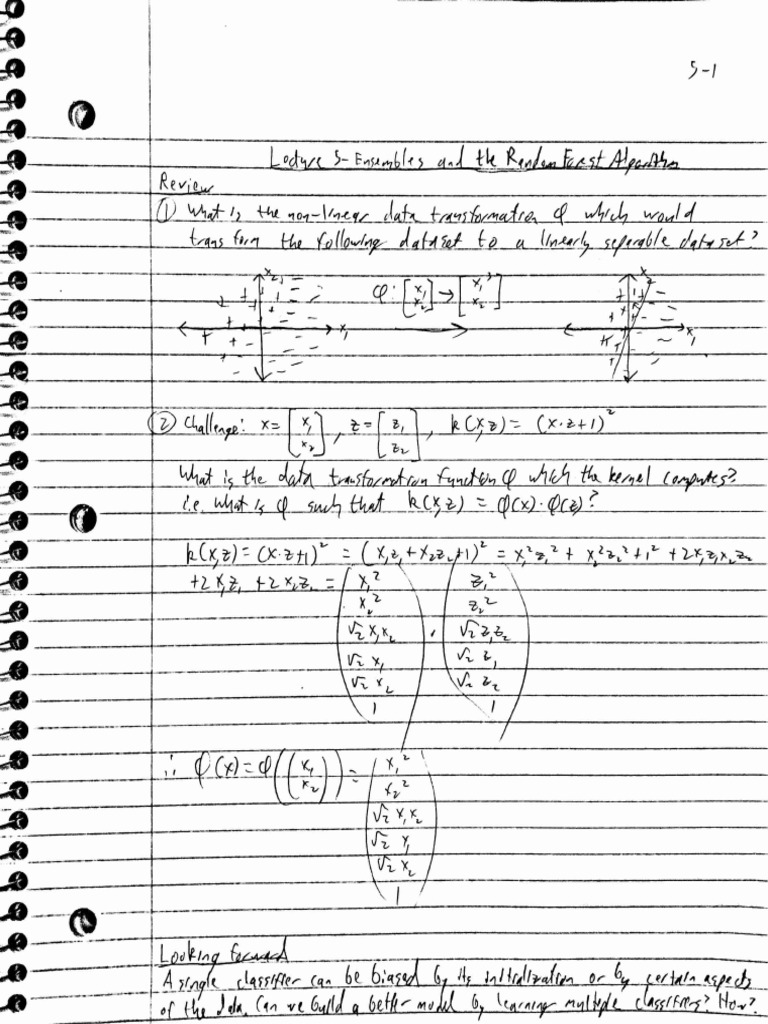 5-1
Lecture 5- Ensembles and the Random Forest Algorithm
Review
① What is the non-linear data transformation φ which would
transform the following dataset to a linearly separable dataset?
x₂ φ: [x₁ x₂] → [x₁³ x₂] x₂
x₁ x₁
② Challenge: x = [x₁ x₂], z = [z₁ z₂], k(x,z) = (x·z+1)²
What is the data transformation function φ which the kernel computes?
i.e. what is φ such that k(x,z) = φ(x)·φ(z)?
k(x,z) = (x·z+1)² = (x₁z₁+x₂z₂+1)² = x₁²z₁² + x₂²z₂² + 1² + 2x₁z₁x₂z₂
+2x₁z₁ + 2x₂z₂ = (x₁² x₂² √2 x₁x₂ √2 x₁ √2 x₂ 1) · (z₁² z₂² √2 z₁z₂ √2 z₁ √2 z₂ 1)
∴ φ(x) = φ((x₁ x₂)) = (x₁² x₂² √2 x₁x₂ √2 x₁ √2 x₂ 1)
Looking forward
A single classifier can be biased by its initialization or by certain aspects
of the data. Can we build a better model by learning multiple classifiers? How?